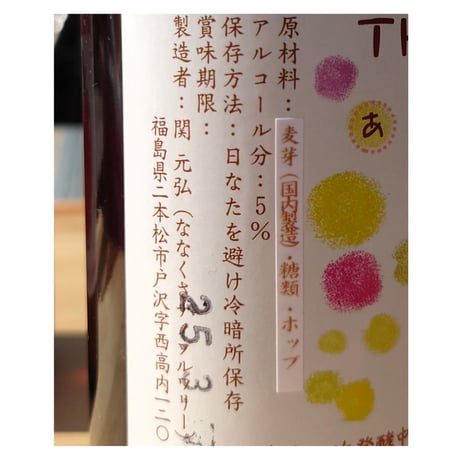 TH
あ
原材料：麦芽（国内製造）・糖類・ホップ
アルコール分：5%
保存方法：日なたを避け冷暗所保存
賞味期限：
25 3
製造者：関 元弘（ななくさナノブルワリー）
福島県二本松市戸沢字西高内一二〇
発酵中